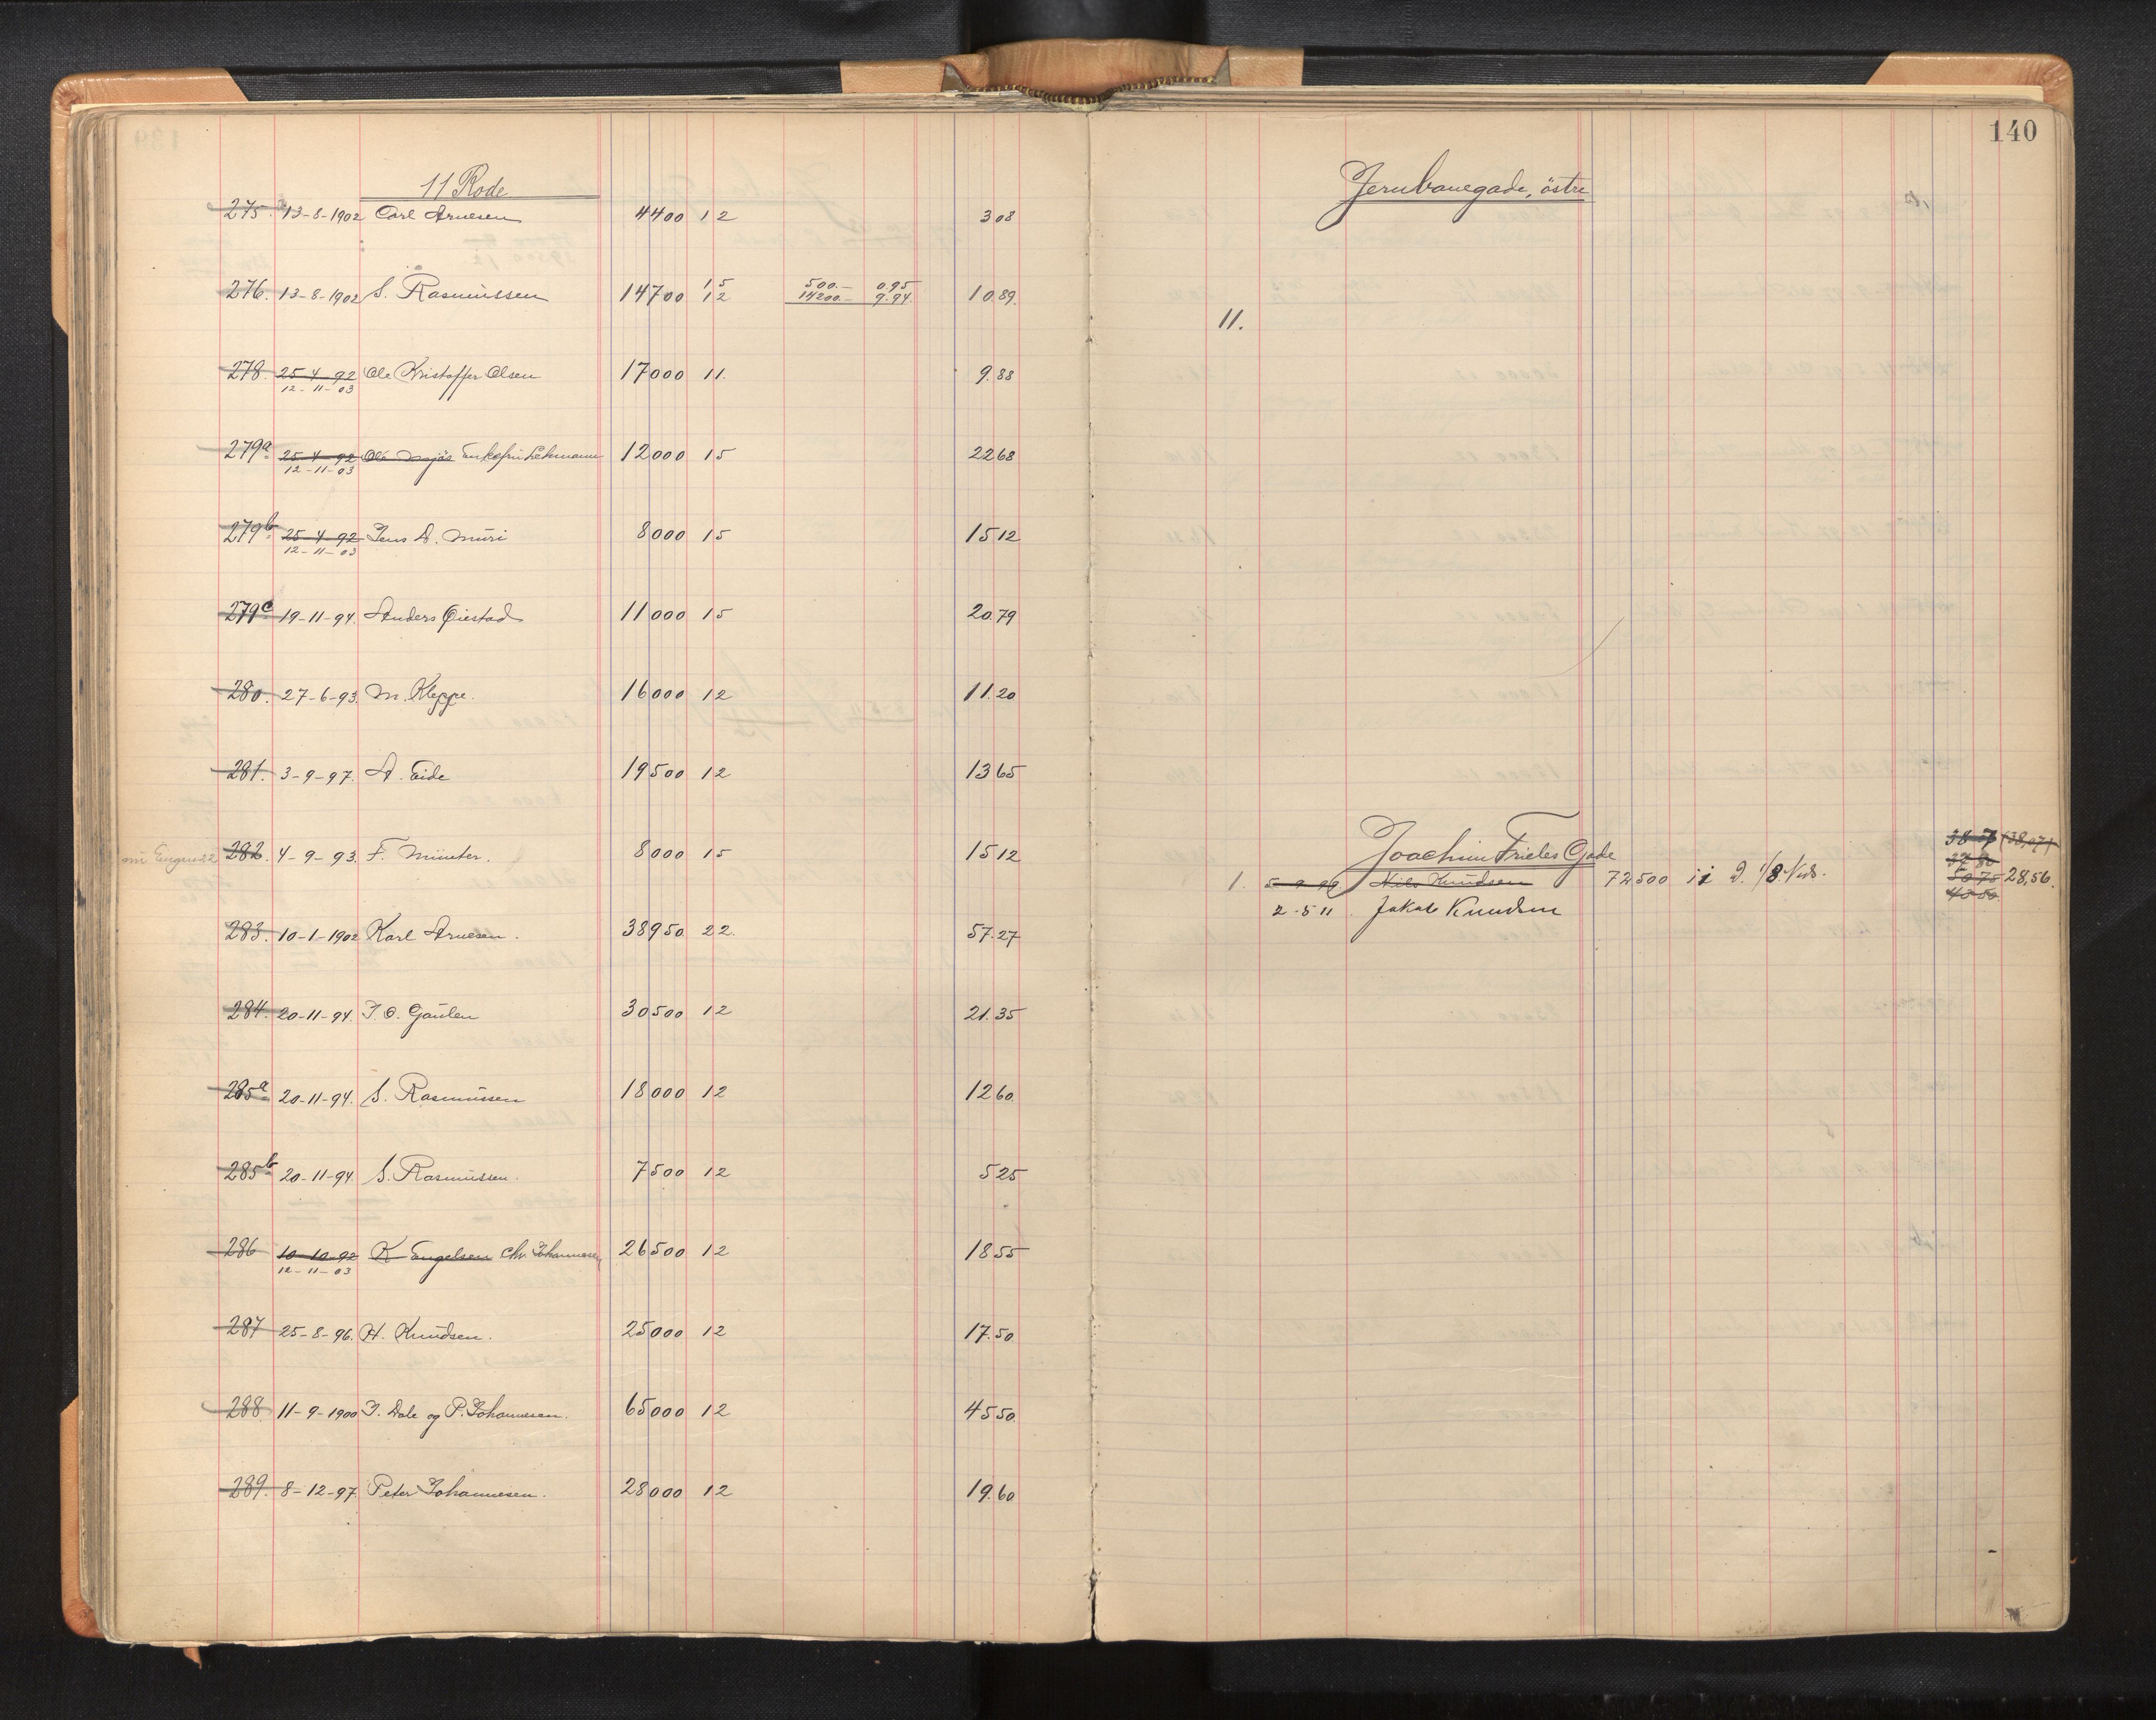 11 Rode
275. 13-8-1902 Carl Arnesen 4400 12 308
276. 13-8-1902 S. Rasmussen 14700 15 12 500.- 0.95 14200.- 9.94. 10.89.
278. 25-4-92 12-11-03 Ole Kristoffer Olsen 17000 11. 9.88
279a 25-4-92 12-11-03 Ole Mjøs Enkefru Lehmann 12000 15 2268
279b 25-4-92 12-11-03 Jens A. Muri 8000 15 1512
279c 19-11-94. Anders Øiestad 11000 15 20.79
280. 27-6-93. M. Kleppe. 16000 12 11.20
281. 3-9-97. A. Eide 19500 12 1365
282. 4-9-93. F. Münster. 8000 15 1512
283. 10-1-1902 Karl Arnesen. 38950 22. 57.27
284. 20-11-94. J. O. Gaulen 30500 12 21.35
285a 20-11-94. S. Rasmussen 18000 12 1260
285b 20-11-94. S. Rasmussen. 7500 12 525
286 10-10-92 12-11-03 K Engelsen Chr. Johannesen 26500 12 1855
287 25-8-96. H. Knudsen. 25000 12 17.50
288 11-9-1900 J. Dale og P. Johannesen. 65000 12 4550
289. 8-12-97. Peter Johannesen. 28000 12 19.60
140
Jernbanegade, östre
11.
Joachim Frieles Gade
1. 5-9-99 Nils Knudsen 72500 11 28,56.
2-5 11. Jakob Knudsen